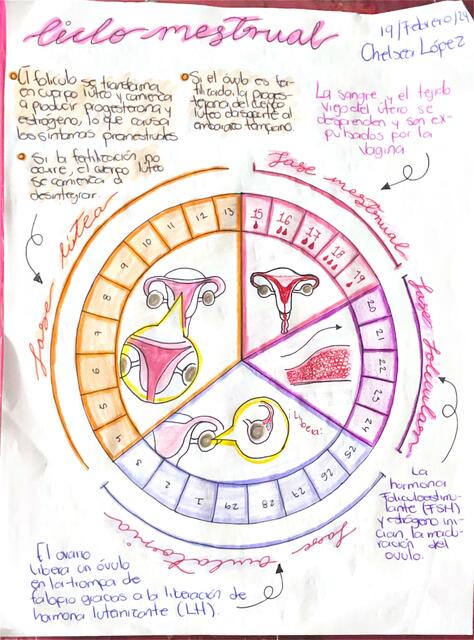 Ciclo mestrual
19/Febrero/24
Chelsea López
El folículo se transforma
en cuerpo lúteo y comienza
a producir progesterona y
estrógeno, lo que causa
los síntomas premestruales
Si el óvulo es fer-
tilizado, la proges-
terona del cuerpo
lúteo da soporte al
embarazo temprano.
La sangre y el tejido
viejo del útero se
desprenden y son ex-
pulsados por la
vagina
Si la fertilización no
ocurre, el cuerpo lúteo
se comienza a
desintegrar.
fase lútea
fase mestrual
fase folicular
fase ovulatoria
15
16
17
18
19
20
21
22
23
24
25
26
27
28
29
1
2
3
4
5
6
7
8
9
10
11
12
13
¡Libera!
La
hormona
foliculoestimu-
lante (FSH)
y estrógeno ini-
cian la madu-
ración del
óvulo.
El ovario
libera un óvulo
en la trompa de
falopio gracias a la liberación de
hormona luteinizante (LH).